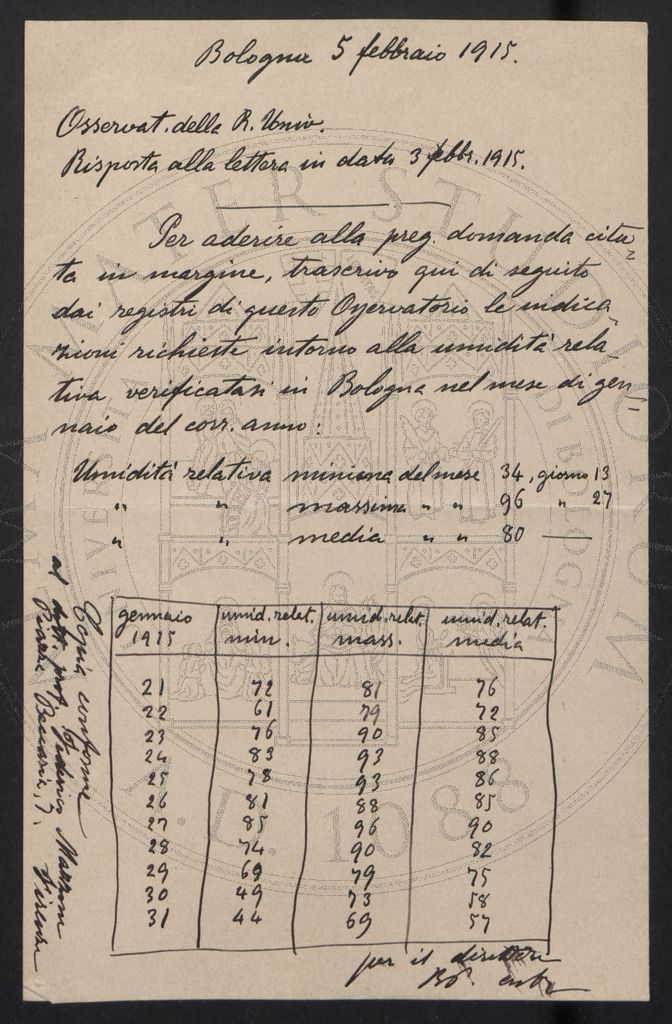 Bologna 5 febbraio 1915.
Osservat. della R. Univ.
Risposta alla lettera in data 3 febbr. 1915.
Per aderire alla preg. domanda cita
ta in margine, trascrivo qui di seguito
dai registri di questo Osservatorio le indica
zioni richieste intorno alla umidità rela
tiva, verificatasi in Bologna nel mese di gen
naio del corr. anno:
Umidità relativa minima del mese 34, giorno 13
" " massima " " 96 " 27
" " media " " 80 —
gennaio 1915 umid. relat. min. umid. relat. mass. umid. relat. media
21 72 81 76
22 61 79 72
23 76 90 85
24 83 93 88
25 78 93 86
26 81 88 85
27 85 96 90
28 74 90 82
29 69 79 75
30 49 73 58
31 44 69 57
per il direttore
Copia conforme
al dott. prof. Federigo
Piazza Beccaria, 7. Firenze
ALMA MATER STUDIORUM
A.D. 1088